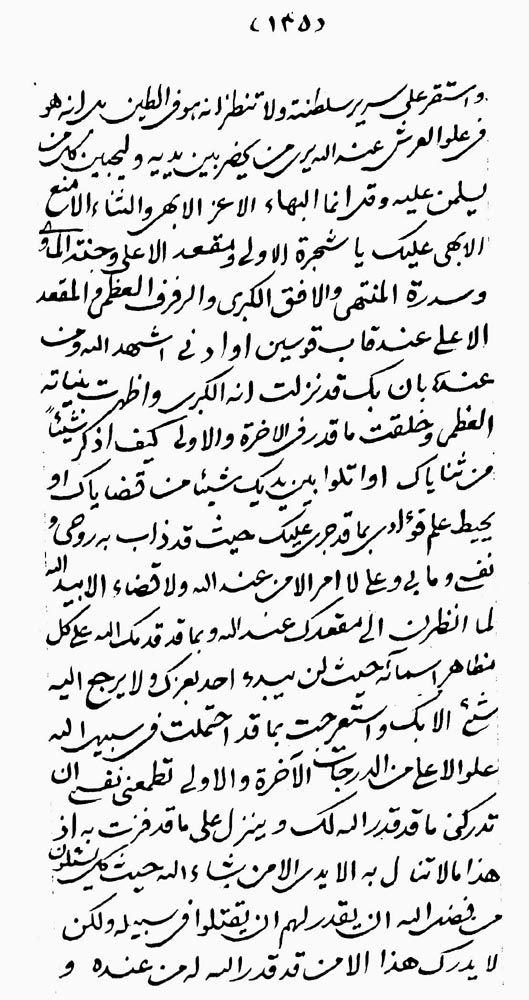 (۱۳۵)
واستقر على سرير سلطنته ولا تنظر انه هو فى الطين بل انه هو
فى علو العرش عند الله يرى من يحضر بين يديه وليجيبن كل من
يسلمن عليه وقل انما البهاء الاعز الابهى والثناء الامنع
الابهى عليك يا شجرة الاولى ومقعد الاعلى وجنة المأوى
وسدرة المنتهى والافق الكبرى والرفرف العظمى والمقعد
الاعلى عند قاب قوسين او ادنى اشهد الله ومن
عنده بان بك قد نزلت انه الكبرى واظهرت بنياته
العظمى وخلقت ما قدر فى الاخرة والاولى كيف اذكر شيئاً
من ثناياك او اتلوا بين يديك شيئا من قضاياك او
يحيط علم فؤادى بما قد جرى عليك حيث قد ذاب به روحى و
نفسى وما بى وعلى لا امر الا من عند الله ولا قضاء الا بيد الله
لما انظرن الى مقعدك عند الله وبما قد قدمك الله على كل
مظاهر اسمائه حيث لن يبدء احد بعزك ولا يرجع اليه
شئ الا بك واستعرجت بما قد احتملت فى سبيل الله
علو الاعلى من الدرجات الآخرة والاولى تطمعنى نفسى ان
تدركنى ما قد قدر الله لك وينزل على ما قد فزت به اذ
هذا مالا تنال به الايدى الا من يشاء الله حيث كل يسئلون
من فضل الله ان يقدر لهم ان يقتلوا فى سبيله ولكن
لا يدرك هذا الا من قد قدر الله له من عنده و